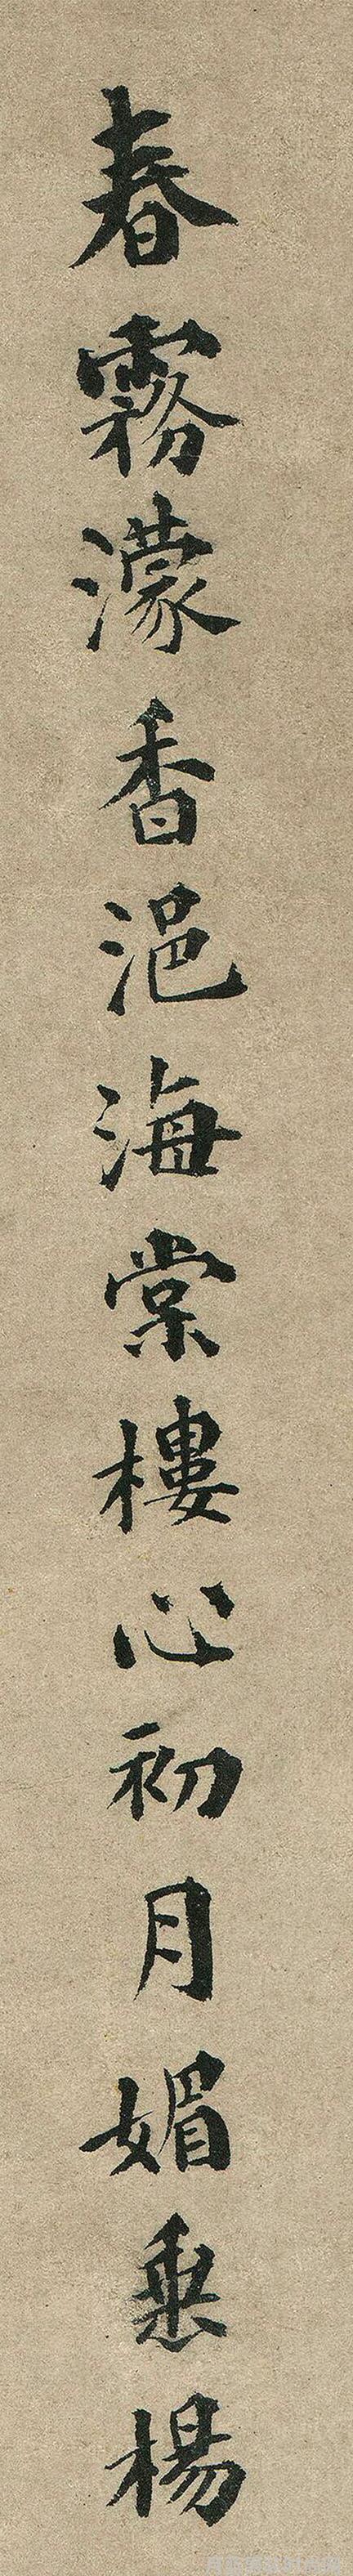 春霧濛香浥海棠樓心初月媚垂楊